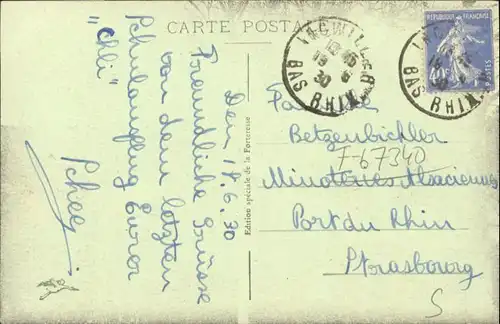 CARTE POSTALE
Den 18.6.30
Freundliche Grüsse
von dem letzten
Schulausflug Eurer
"Chli"
Edition spéciale de la Forteresse
BAS RHIN
18 6
30
RÉPUBLIQUE FRANÇAISE
BAS RHIN
Betzenbichler
F-67340
Minoteries Alsaciennes
Port du Rhin
Strasbourg
S